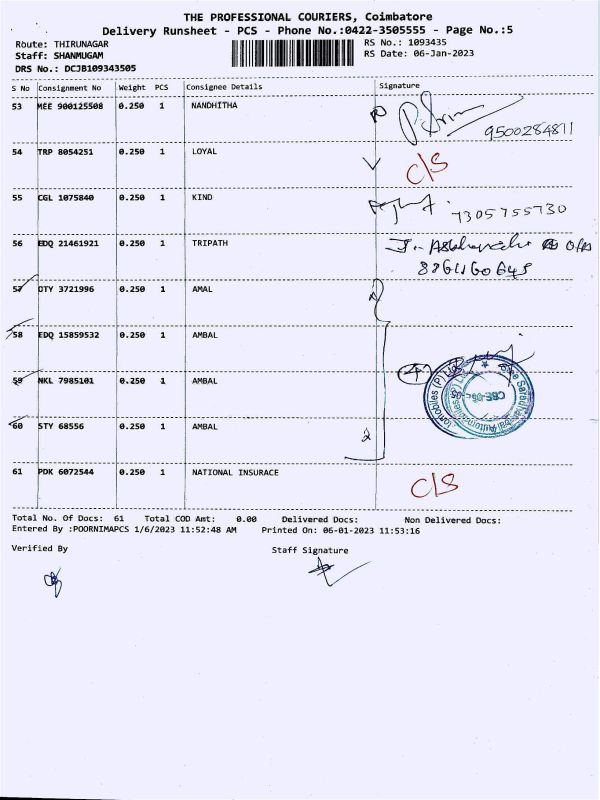 THE PROFESSIONAL COURIERS, Coimbatore
Delivery Runsheet - PCS - Phone No.:0422-3505555 - Page No.:5
Route: THIRUNAGAR
RS No.: 1093435
Staff: SHANMUGAM
RS Date: 06-Jan-2023
DRS No.: DCJB109343505
S No Consignment No Weight PCS Consignee Details Signature
53 MEE 900125508 0.250 1 NANDHITHA
9500284811
54 TRP 8054251 0.250 1 LOYAL C/S
55 CGL 1075840 0.250 1 KIND 7305755730
56 EDQ 21461921 0.250 1 TRIPATH
57 DTY 3721996 0.250 1 AMAL
58 EDQ 15859532 0.250 1 AMBAL
59 NKL 7985101 0.250 1 AMBAL 4
60 STY 68556 0.250 1 AMBAL
61 PDK 6072544 0.250 1 NATIONAL INSURACE C/S
Total No. Of Docs: 61 Total COD Amt: 0.00 Delivered Docs: Non Delivered Docs:
Entered By :POORNIMAPCS 1/6/2023 11:52:48 AM Printed On: 06-01-2023 11:53:16
Verified By Staff Signature